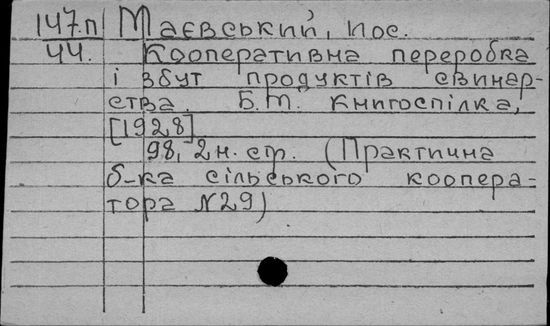 147.п Маєвський, Йос.
44. Кооперативна переробка
і збут продуктів свинар-
ства. Б.М. Книгоспілка,
[1928]
98, 2 н. стр. (Практична
б-ка сільського коопера-
тора №29)